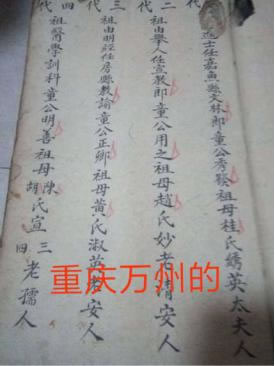 進士任嘉魚縣文林郎童公秀發祖母桂氏綉英太夫人
二代
祖由舉人任教郎童公用之祖母趙氏妙清老安人
三代
祖由明經任房縣教諭童公正卿祖母黃氏淑英老安人
四代
祖醫學訓科童公明善祖母陳胡氏宣三四老孺人
重庆万州的